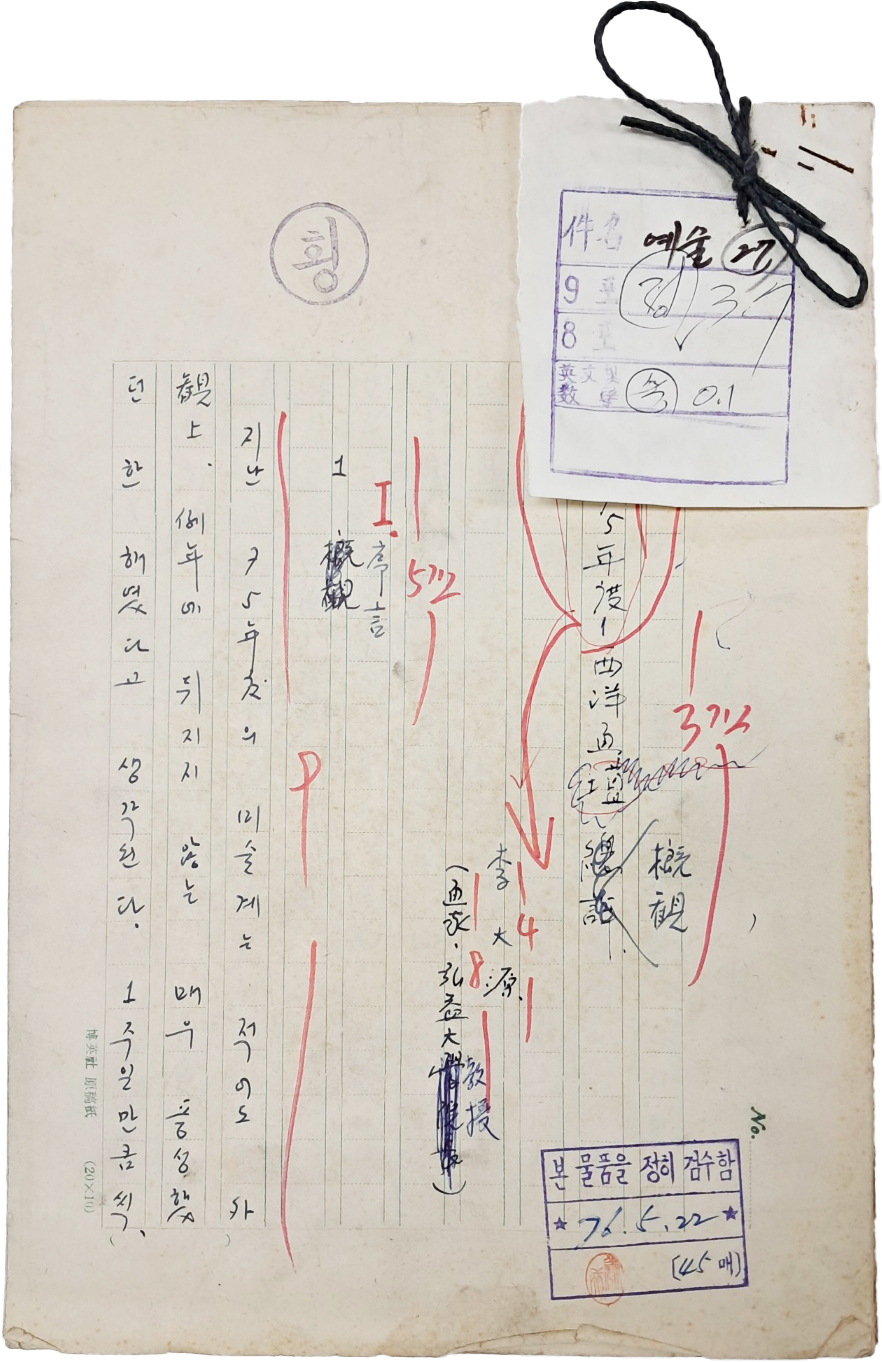 횡
件名 예술 27
9 포 3.7
8 포
英文 0.1
No.
75年度 西洋画 概観
李大源
(画家·弘益大 教授)
I. 序言
1 概観
지난 75年度의 미술계는 적어도 外
観上, 例年에 뒤지지 않는 매우 풍성했
던 한 해였다고 생각된다. 1주일만큼씩,
3行
5行
14
18
9
博英社 原稿紙 (20×10)
본 물품을 정히 검수함
★ 76.5.22 ★
(45매)